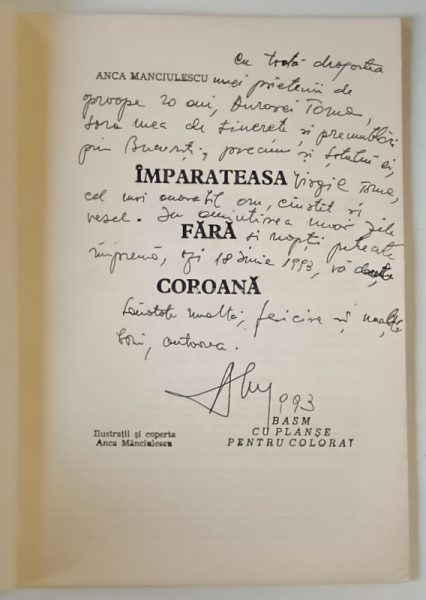 Cu toată dragostea
ANCA MANCIULESCU unei prietenii de
aproape 20 ani, Aurorei Toma,
sora mea de tinerete și
prin București, precum și soțului ei,
ÎMPARATEASA Virgil Toma,
cel mai onorabil om, cinstit și
vesel. In amintirea unor zile
FĂRĂ și nopți
împreună, azi 18 iunie 1993, vă
COROANĂ
Sănătate multă, fericire și multe
autoarea.
1993
BASM
CU PLANȘE
PENTRU COLORAT
Ilustrații și coperta
Anca Mânciulescu